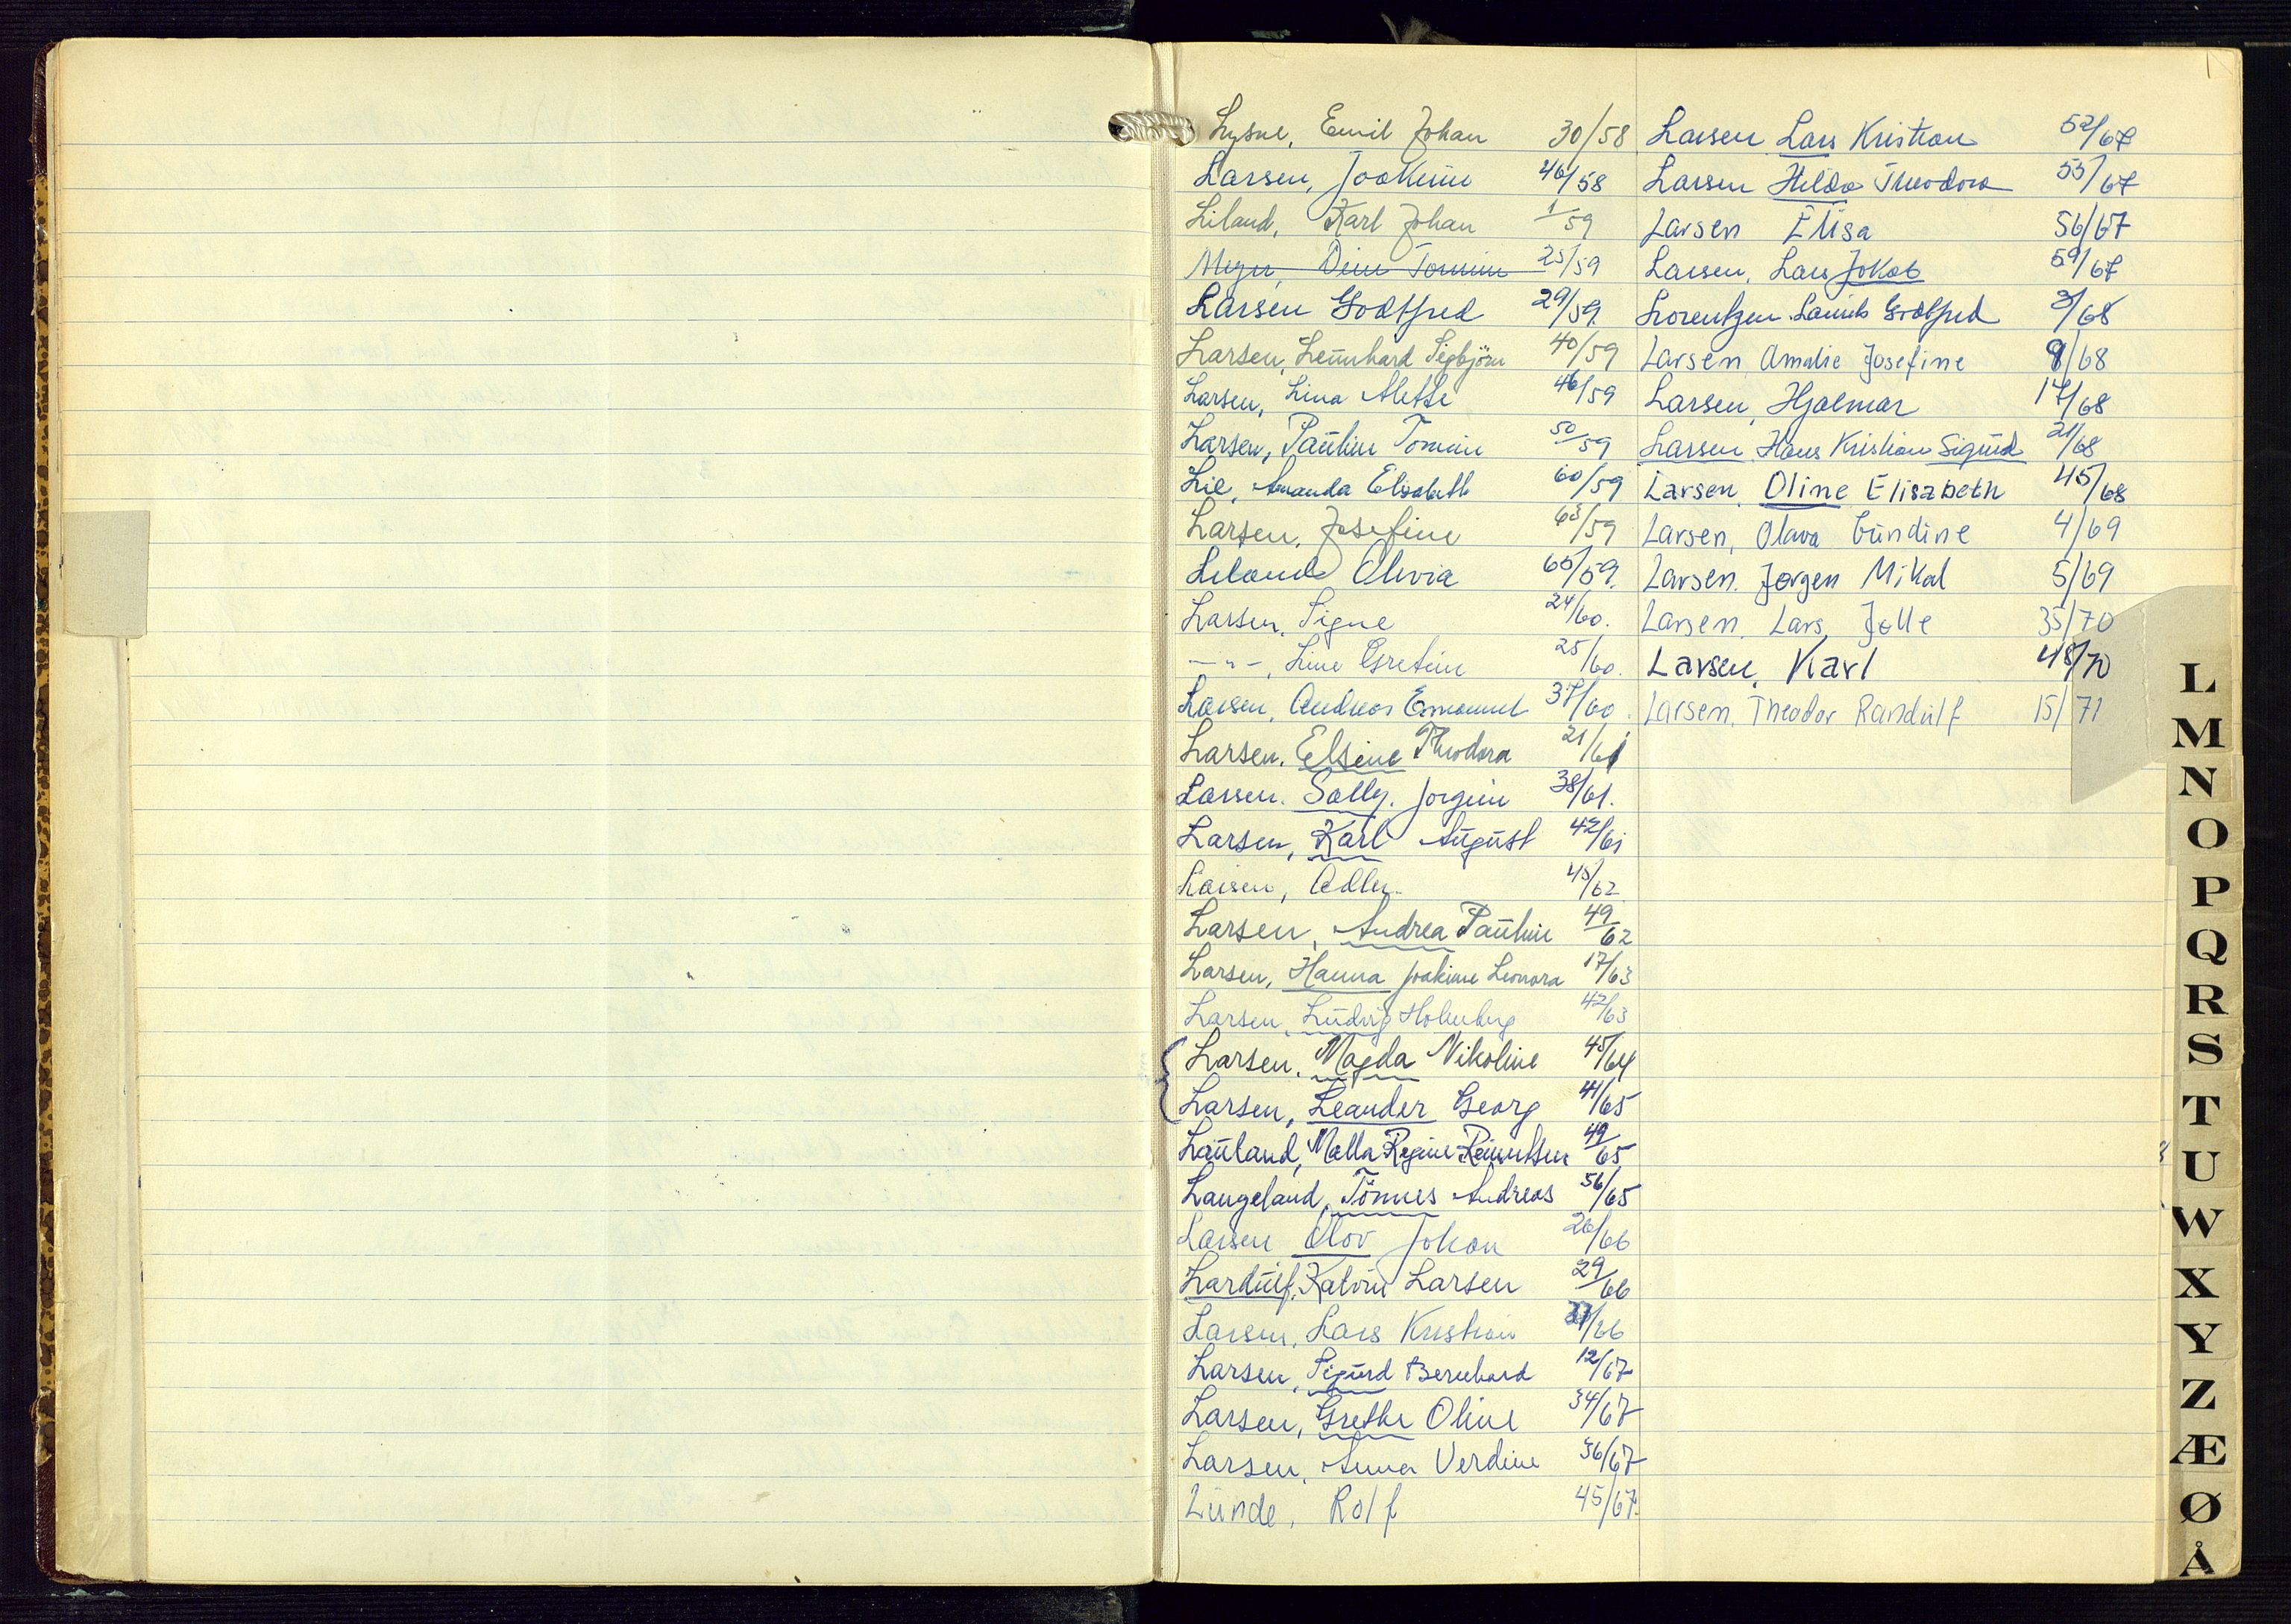 Lysne, Emil Johan 30/58
Larsen, Joakime 46/58
Liland, Karl Johan 1/59
Meyer, Tomine 25/59
Larsen Godtfred 29/59.
Larsen, Lennhard Sigbjörn 40/59
Larsen, Lina Alette 46/59
Larsen, Pauline Tomine 50/59
Lie, Amanda Elisabeth 60/59
Larsen, Josefine 63/59
Liland Olivia 65/59.
Larsen, Signe 24/60.
—"—, Line Gretine 25/60.
Larsen, Andreas Emanuel 37/60.
Larsen. Elsine Theodora 21/61
Larsen. Sally. Jorgine 38/61.
Larsen, Karl August 42/61
Larsen, Adler. 45/62
Larsen, Andrea Pauline 49/62
Larsen, Hanna Joakime Leonora 17/63
Larsen, Ludvig Holmberg 42/63
Larsen. Magda Nikoline 45/64
Larsen, Leander Georg 41/65
Lauland, Malla Regine Reinertsen 49/65
Langeland, Tönnes Andreas 56/65
Larsen Olav Johan 26/66
Lardulf. Katrine Larsen 29/66
Larsen, Lars Kristian /66
Larsen, Sigurd Bernhard 12/67
Larsen, Grethe Oline 34/67
Larsen, Anna Verdine 36/67
Lunde, Rolf 45/67.
Larsen Lars Kristian 52/67
Larsen Hilda Theodora 55/67
Larsen Elisa 56/67
Larsen, Lars Jokob 59/67
Lorentzen Laurits Godtfred 3/68
Larsen, Amalie Josefine 9/68
Larsen, Hjalmar 17/68
Larsen, Hans Kristian Sigurd 21/68
Larsen, Oline Elisabeth 45/68
Larsen, Olava Gundine 4/69
Larsen. Jørgen Mikal 5/69
Larsen, Lars, Jelle 35/70
Larsen, Karl 48/70
Larsen, Theodor Randulf 15/71
L
M
N
O
P
Q
R
S
T
U
W
X
Y
Z
Æ
Ø
Å